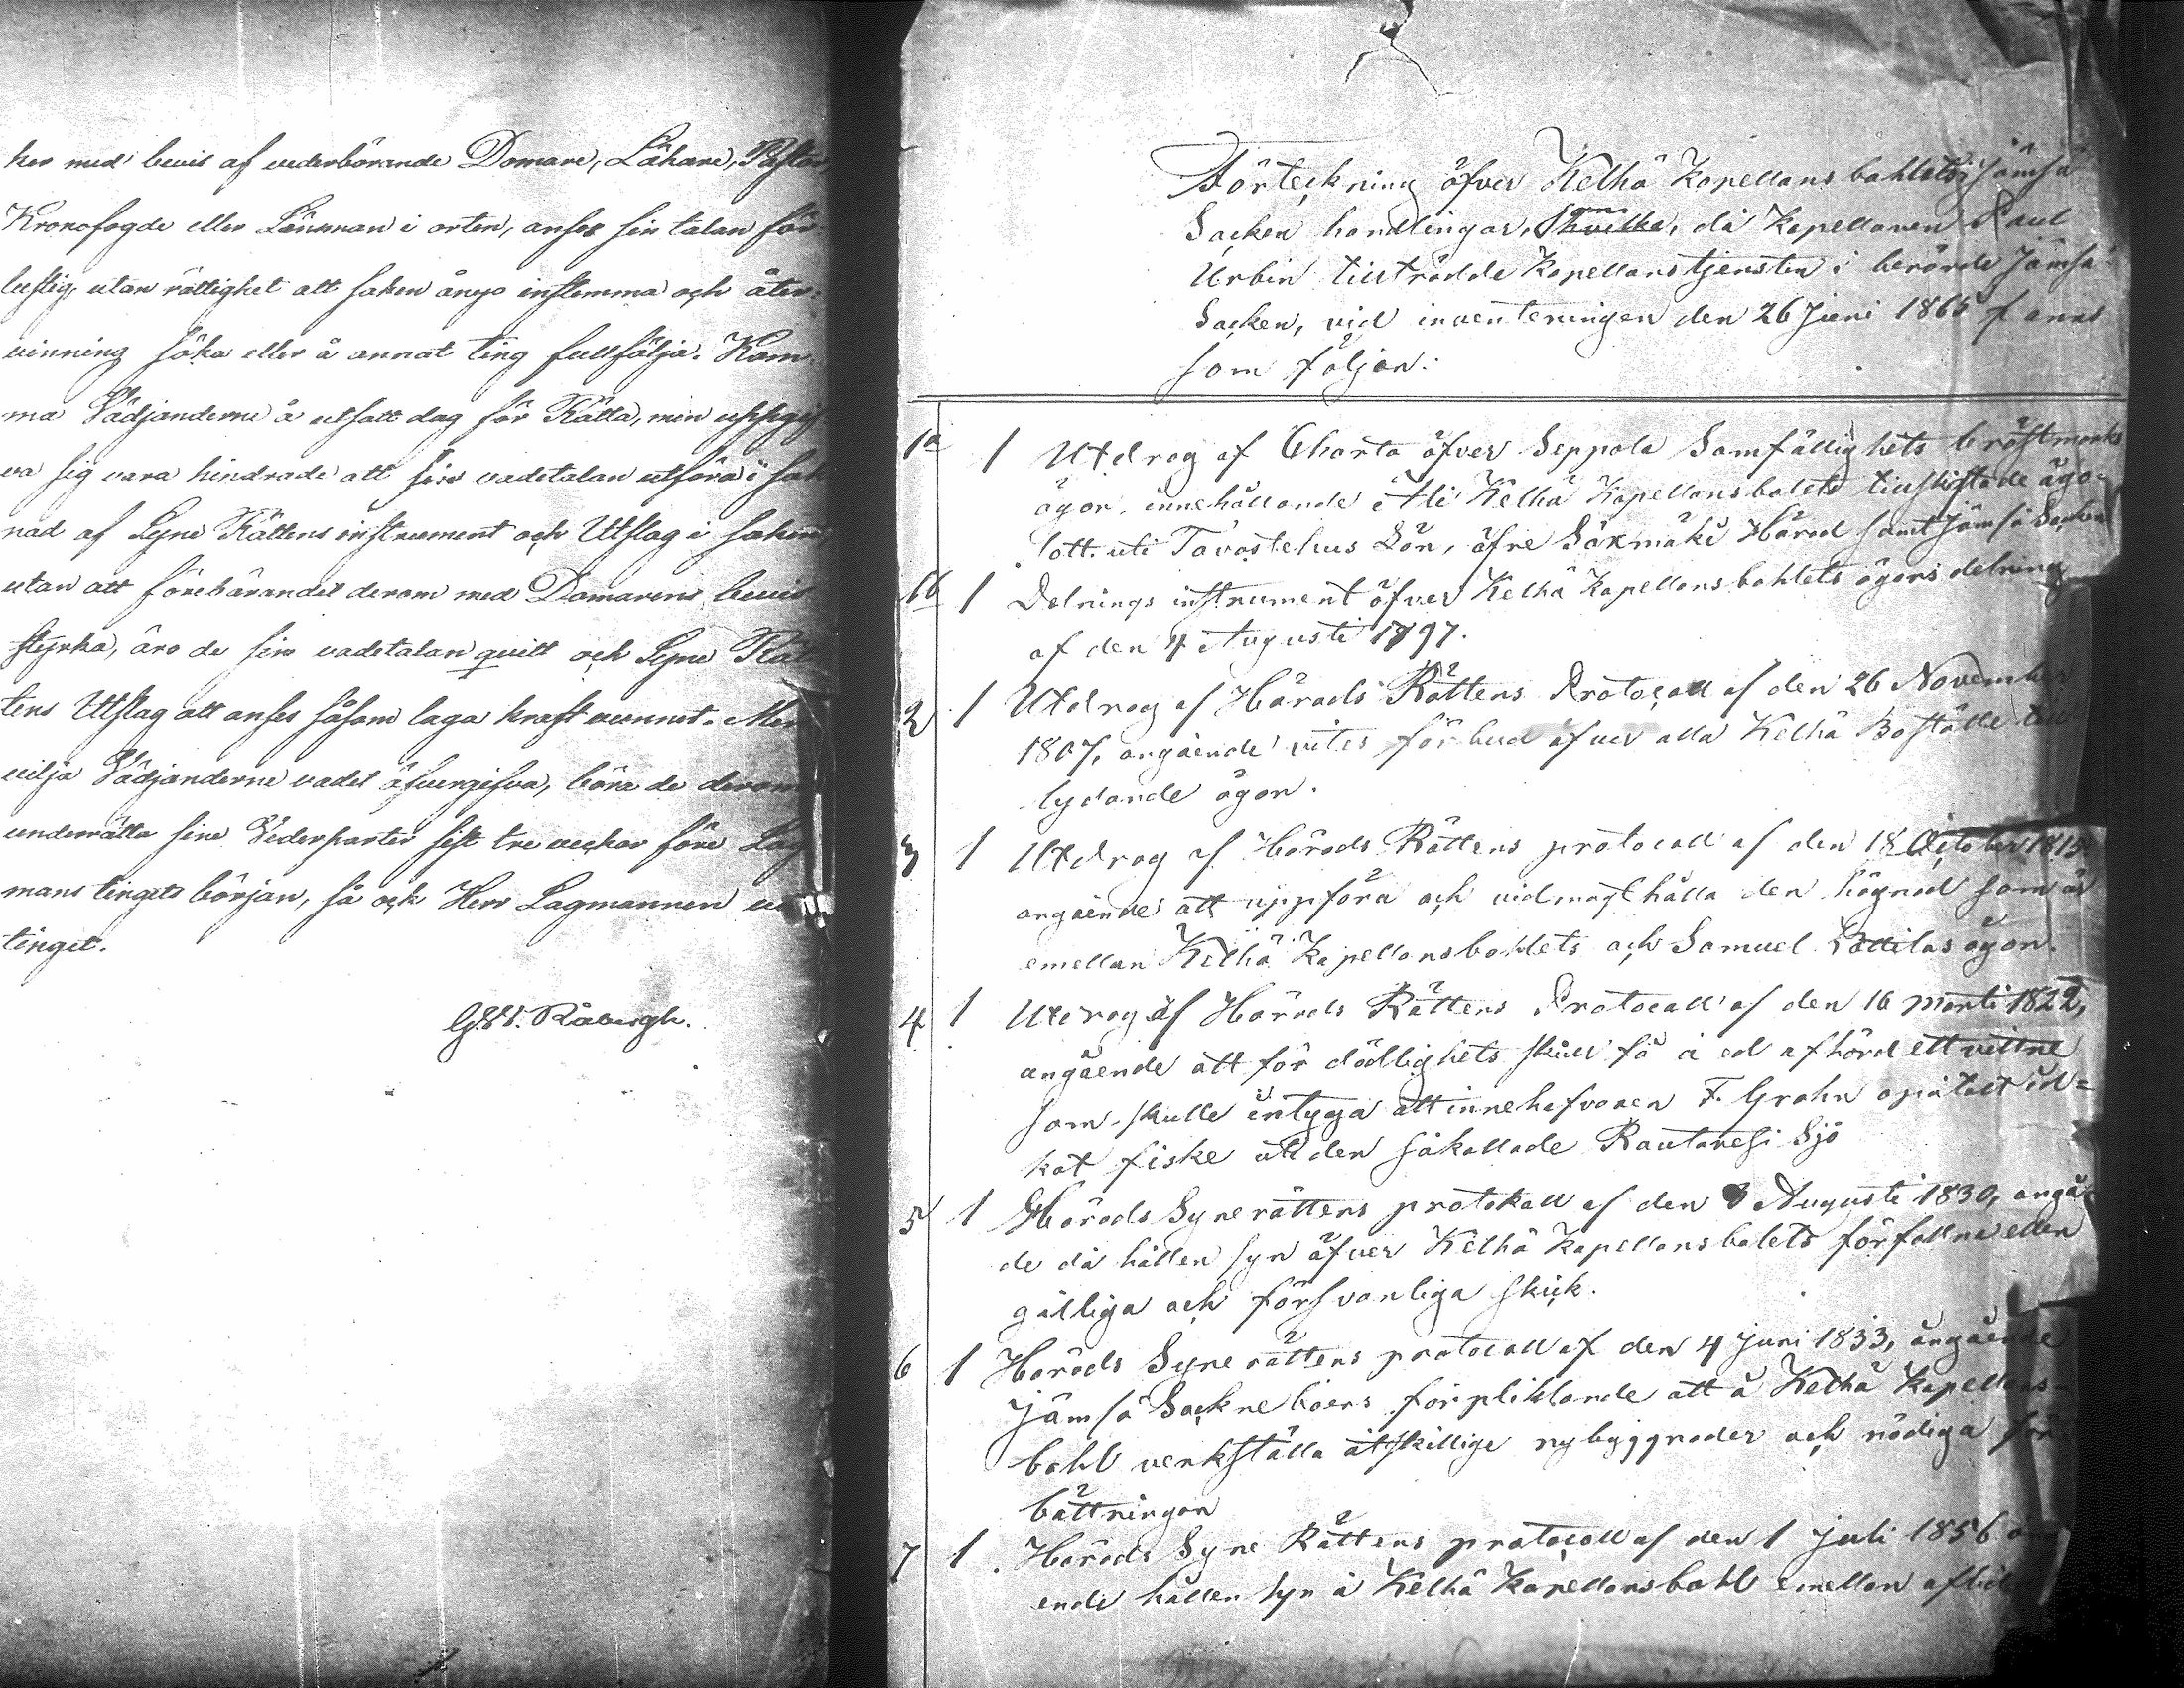 ker med bevis af vederbörande Domare, Läkare, Pastor,
Kronofogde eller Länsman i orten, anses sin talan för
lustig utan rättighet att saken ånyo instemma och åter-
vinning söka eller å annat ting fullfölja. Kom
ma Vädjanderne å utsatt dag för Rätta, men uppgif
va sig vara hindrade att sin vadetalan utföra i sak
nad af Syne Rättens instrument och Utslag i saken,
utan att förebärandet derom med Domarens bevis
styrka, äro de sin vadetalan quitt och Syne Rät
tens Utslag att anses såsom laga kraft vunnet. Men
vilja Vädjanderne vadet öfvergifva, böra de derom
underrätta sine Vederparter sist tre veckor före Lag
mans tingets början, så ock Herr Lagmannen
tinget.
Förteckning öfver Kelhä Kapellans bohlets i Jämsä
Socken handlingar, som, då Kapellanen Paul
Urbin tillträdde Kapellanstjensten i berörde Jämsä
Socken, vid inventeringen den 26 Juni 1865 fanns
som följer:
1a 1 Utdrag af Charta öfver Seppola Samfällighets bröstmarks
ägor, innehållande Ali Kelhä Kapellansbolets tillskiftade ägo-
lott uti Tavastehus Län, öfre Säxmäki Härad samt Jämsä Socken
1b 1 Delnings instrument öfver Kelhä Kapellansbohlets ägors delning
af den 4 Augusti 1797.
2 1 Utdrag af Härads Rättens Protocoll af den 26 November
1807, angående vites förbud öfver alla Kelhä Boställe till
lydande ägor.
3 1 Utdrag af Härads Rättens protocoll af den 18 October 1815
angående att uppföra och vidmagthålla den hägnad som är
emellan Kelhä Kapellansbohlets och Samuel ägor.
4 1 Utdrag af Härads Rättens Protocoll af den 16 Marti 1822,
angående att för dödlighets skull få å ed afhörd ett vittne
som skulle intyga att innehafvaren F. Grahn opåtalt id-
kat fiske uti den såkallade Rautavesi Sjö
5 1 Härads Synerättens protokoll af den 3 Augusti 1830, angå
de då hållen syn öfver Kelhä Kapellansbolets förfallna eller
gilliga och försvarliga skick.
6 1 Härads Syne rättens protocoll af den 4 Juni 1833, angående
Jämsä Sockneboers förpliktande att å Kelhä Kapellans
bohl verkställa åtskillige nybyggnader och nödiga för
bättringar
7 1 Härads Syne Rättens protocoll af den 1 Juli 1856
ende hållen syn å Kelhä Kapellansbohl emellan